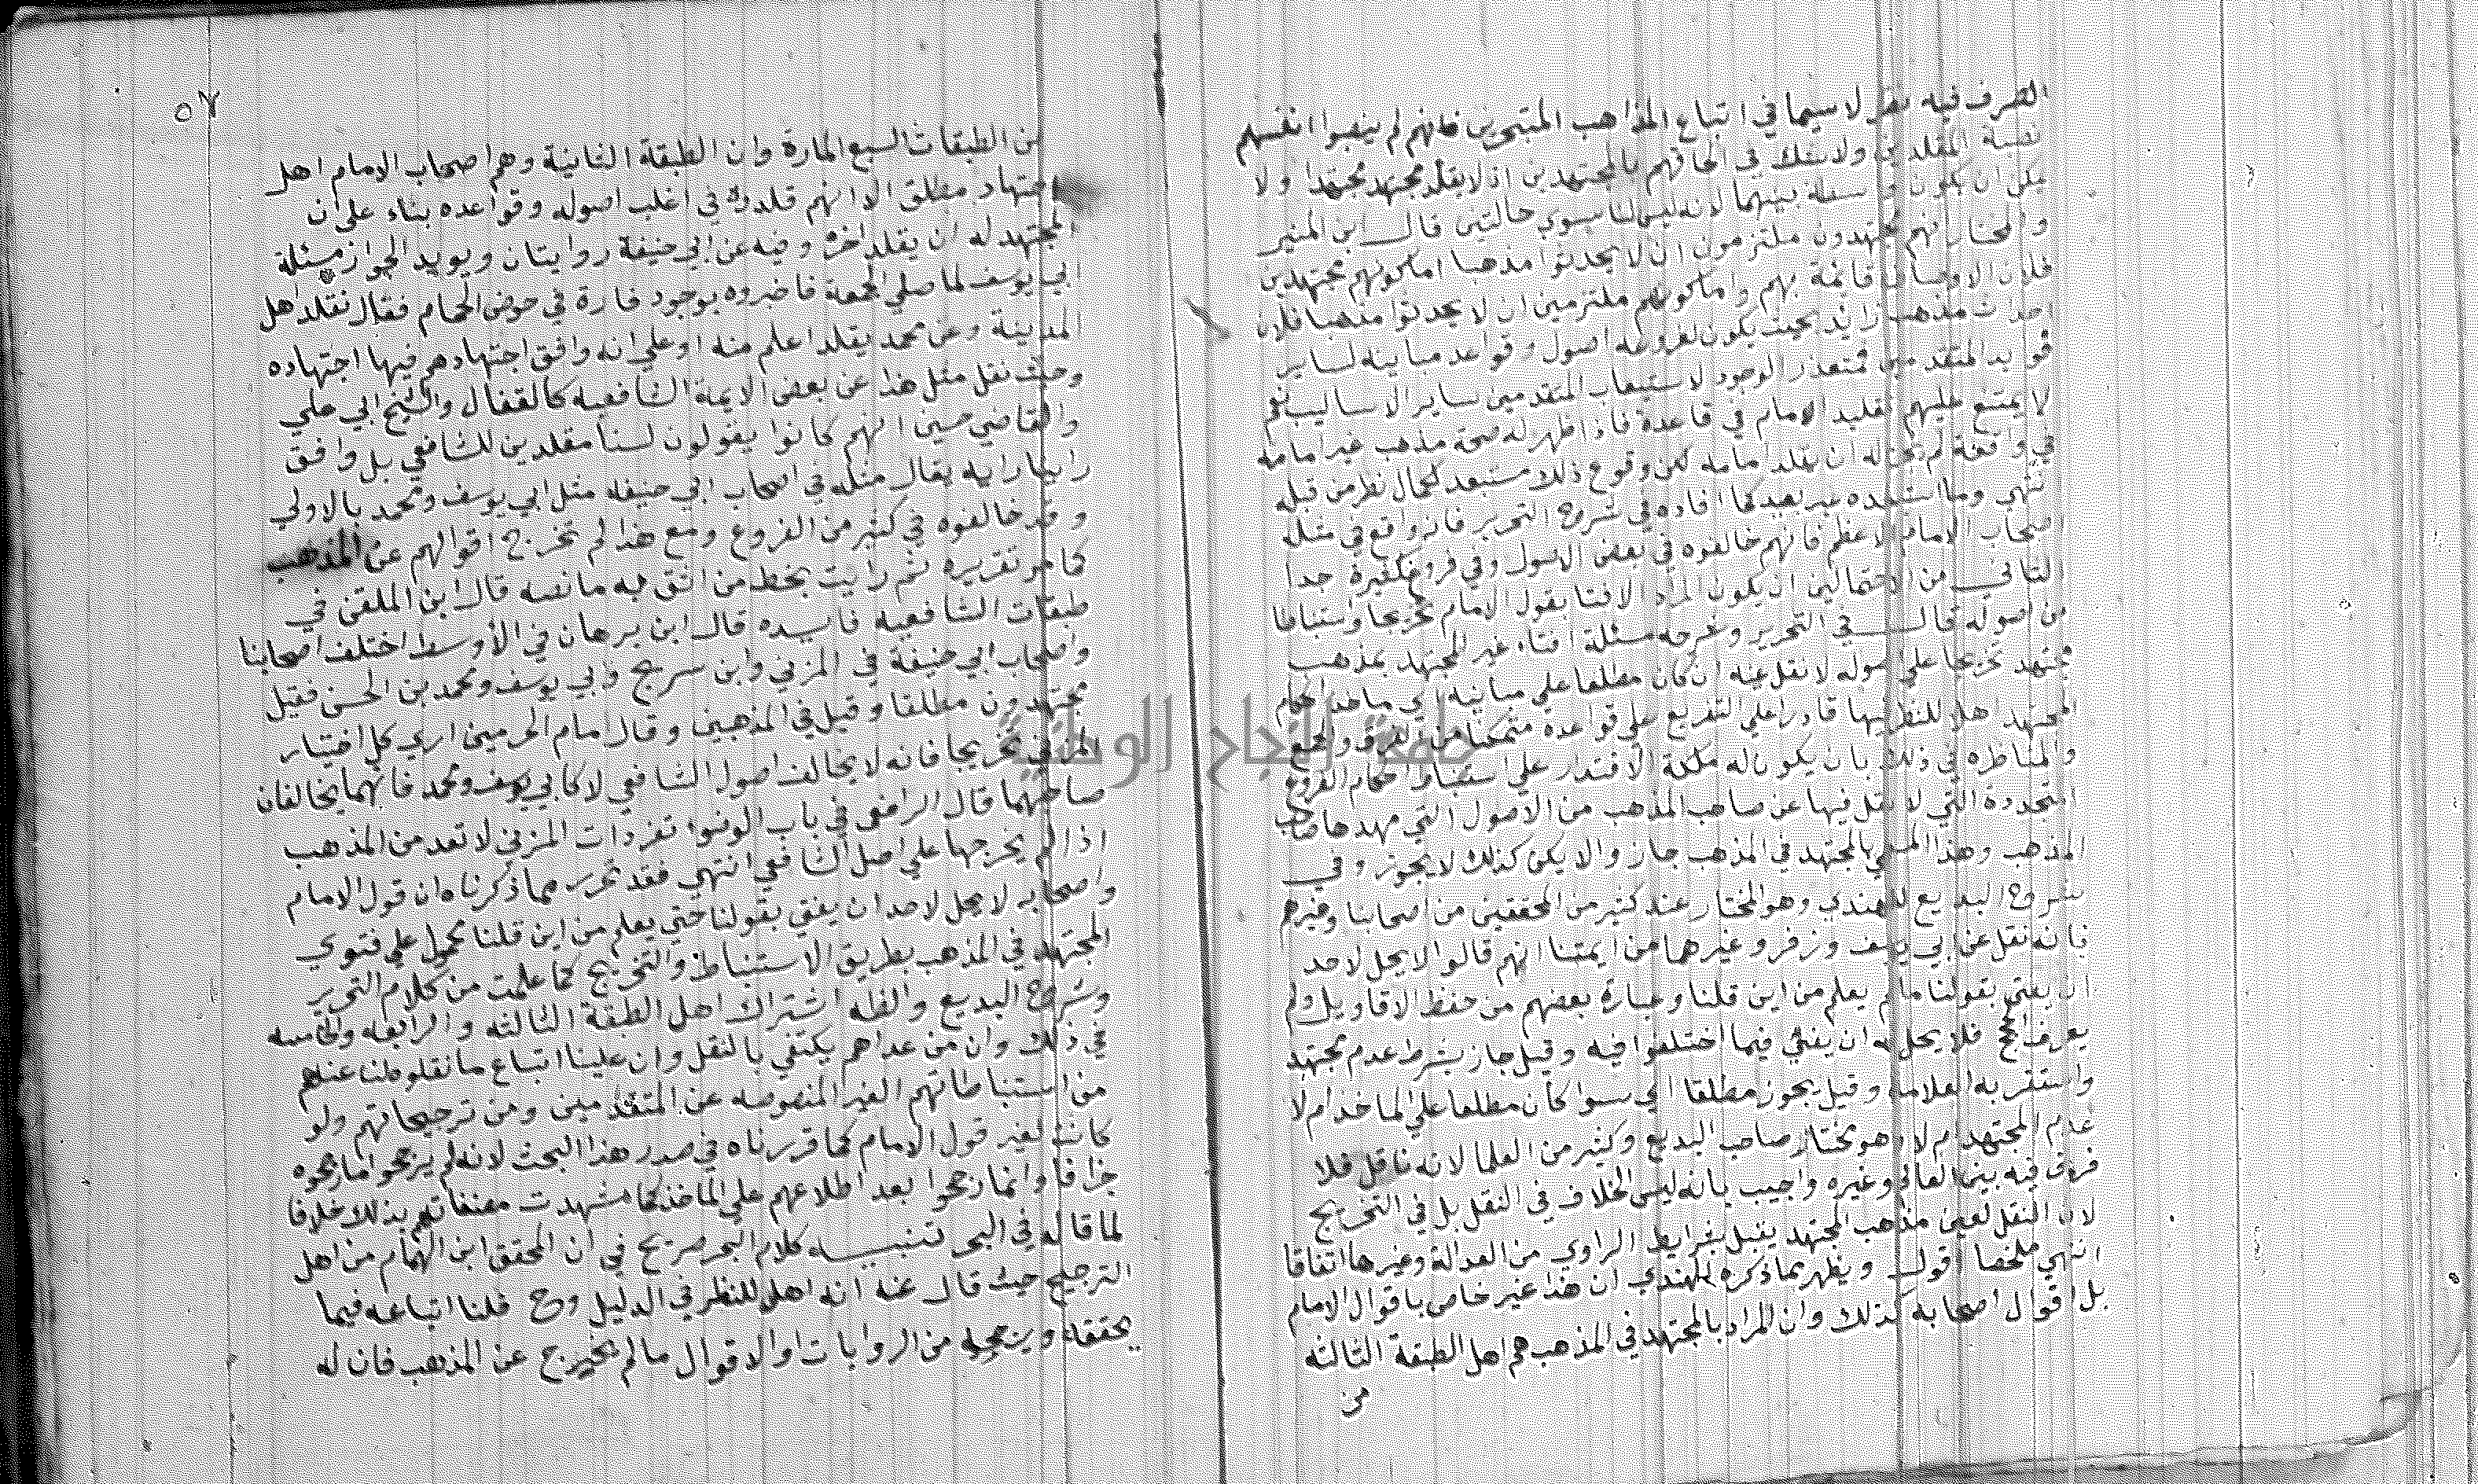 الصرف فيه نظر لاسيما في اتباع المذاهب المتبحرين فانهم لم ينصبوا انفسهم
نصبة المقلدين ولاشك في الحاقهم بالمجتهدين اذ لا يقلد مجتهد مجتهدا ولا
يمكن ان يكون واسطة بينهما لانه ليس لنا سوي حالتين قال ابن المنير
والمختار انهم مجتهدون ملتزمون ان لا يحدثوا مذهبا اما كونهم مجتهدين
فلان الاوصاف قائمة بهم واما كونهم ملتزمين ان لا يحدثوا مذهبا فلان
احداث مذهب زايد بحيث يكون لفروعه اصول وقواعد مباينه لساير
قواعد المتقدمين فمتعذر الوجود لاستيعاب المتقدمين ساير الاساليب نعم
لا يمتنع عليهم تقليد الامام في قاعدة فاذا ظهر له صحة مذهب غير امامه
في واقعة لم يجز له ان يقلد امامه لكن وقوع ذلك مستبعد لكمال نظر من قبله
انتهي وما استبعده غير بعيد كما افاده في شرح التحرير فانه واقع في مثل
اصحاب الامام الاعظم فانهم خالفوه في بعض الاصول وفي فروع كثيرة جدا
الثاني من الاحتمالين ان يكون المراد الافتا بقول الامام تخريجا واستنباطا
من اصوله قال في التحرير وشرحه مسئلة افتاء غير المجتهد بمذهب
مجتهد تخريجا علي اصوله لا نقل عينه ان كان مطلعا علي مبانيه اي ماخذ احكام
المجتهد اهلا للنظر فيها قادرا علي التفريع علي قواعده متمكنا من الفرق والجمع
والمناظره في ذلك بان يكون له ملكة الاقتدار علي استنباط احكام الفروع
المتجددة التي لا نقل فيها عن صاحب المذهب من الاصول التي مهدها صاحب
المذهب وهذا المسمي بالمجتهد في المذهب جاز والا يكن كذلك لا يجوز وفي
شرح البديع للهندي وهو المختار عند كثير من المحققين من اصحابنا وغيرهم
فانه نقل عن ابي يوسف وزفر وغيرهما من ايمتنا انهم قالوا لا يحل لاحد
ان يفتي بقولنا مالم يعلم من اين قلنا وعبارة بعضهم من حفظ الاقاويل ولم
يعرف الحجج فلا يحل له ان يفتي فيما اختلفوا فيه وقيل جاز بشرط عدم مجتهد
واستقر به العلامة وقيل يجوز مطلقا اي سوا كان مطلعا علي الماخذ ام لا
عدم المجتهد ام لا وهو مختار صاحب البديع وكثير من العلما لانه ناقل فلا
فرق فيه بين العالم وغيره واجيب بانه ليس الخلاف في النقل بل في التخريج
لان النقل لعين مذهب المجتهد يقبل بشرايط الراوي من العدالة وغيرها اتفاقا
انتهي ملخصا اقول ويظهر مما ذكره الهندي ان هذا غير خاص باقوال الامام
بل اقوال اصحابه كذلك وان المراد بالمجتهد في المذهب هم اهل الطبقة الثالثه
من
٥٧
من الطبقات السبع المارة وان الطبقة الثانية وهم اصحاب الامام اهل
اجتهاد مطلق الا انهم قلدوه في اغلب اصوله وقواعده بناء علي ان
المجتهد له ان يقلد اخر وفيه عن ابي حنيفة روايتان ويويد الجواز مسئلة
ابي يوسف لما صلي الجمعة فاخبروه بوجود فارة في حوض الحمام فقال نقلد اهل
المدينة وعن محمد يقلد اعلم منه او علي انه وافق اجتهادهم فيها اجتهاده
وحيث نقل مثل هذا عن بعض الايمة الشافعيه كالقفال والشيخ ابي علي
والقاضي حسين انهم كانوا يقولون لسنا مقلدين للشافعي بل وافق
راينا رايه يقال مثله في اصحاب ابي حنيفه مثل ابي يوسف ومحمد بالاولي
وقد خالفوه في كثير من الفروع ومع هذا لم تخرج اقوالهم عن المذهب
كما مر تقريره ثم رايت بخط من اثق به ما نصه قال ابن الملقن في
طبقات الشافعيه فايده قال ابن برهان في الأوسط اختلف اصحابنا
واصحاب ابي حنيفة في المزني وابن سريج وابي يوسف ومحمد بن الحسن فقيل
مجتهدون مطلقا وقيل في المذهبين وقال امام الحرمين اري كل اختيار
المزني تخريجا فانه لا يخالف اصول الشافعي لا كابي يوسف ومحمد فانهما يخالفان
صاحبهما قال الرافعي في باب الوضوء تفردات المزني لا تعد من المذهب
اذا لم يخرجها علي اصل الشافعي انتهي فقد تحرر مما ذكرناه ان قول الامام
واصحابه لا يحل لاحد ان يفتي بقولنا حتي يعلم من اين قلنا محمول علي فتوي
المجتهد في المذهب بطريق الاستنباط والتخريج كما علمت من كلام التحرير
وشرح البديع والظاه اشتراك اهل الطبقة الثالثه والرابعه والخامسه
في ذلك وان من عداهم يكتفي بالنقل وان علينا اتباع ما نقلوه لنا عنهم
من استنباطاتهم الغير المنصوصه عن المتقدمين ومن ترجيحاتهم ولو
كانت لغير قول الامام كما قررناه في صدر هذا البحث لانه لم يرجحوا ما رجحوه
جزافا وانما رجحوا بعد اطلاعهم علي الماخذ كما شهدت مصنفاتهم بذلك خلافا
لما قاله في البحر تنبيه كلام البحر صريح في ان المحقق ابن الهمام من اهل
الترجيح حيث قال عنه انه اهل للنظر في الدليل وح فلنا اتباعه فيما
يحققه ويرجحه من الروايات او الاقوال مالم يخرج عن المذهب فان له
جامعة النجاح الوطنية